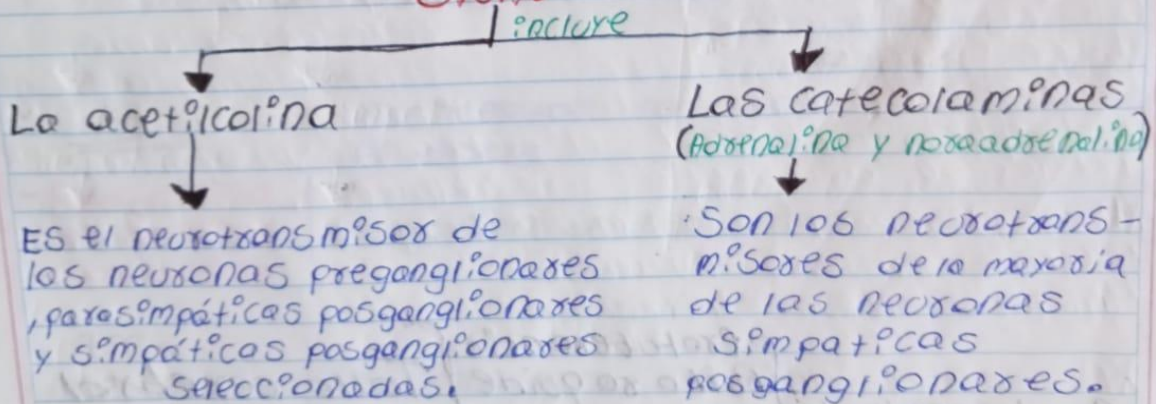 incluye
La acetilcolina
Es el neurotransmisor de
las neuronas preganglionares
, parasimpáticas posganglionares
y simpáticas posganglionares
seleccionadas.
Las catecolaminas
(Adrenalina y noraadrenalina)
·Son los neurotrans-
misores de la mayoria
de las neuronas
simpaticas
posganglionares.